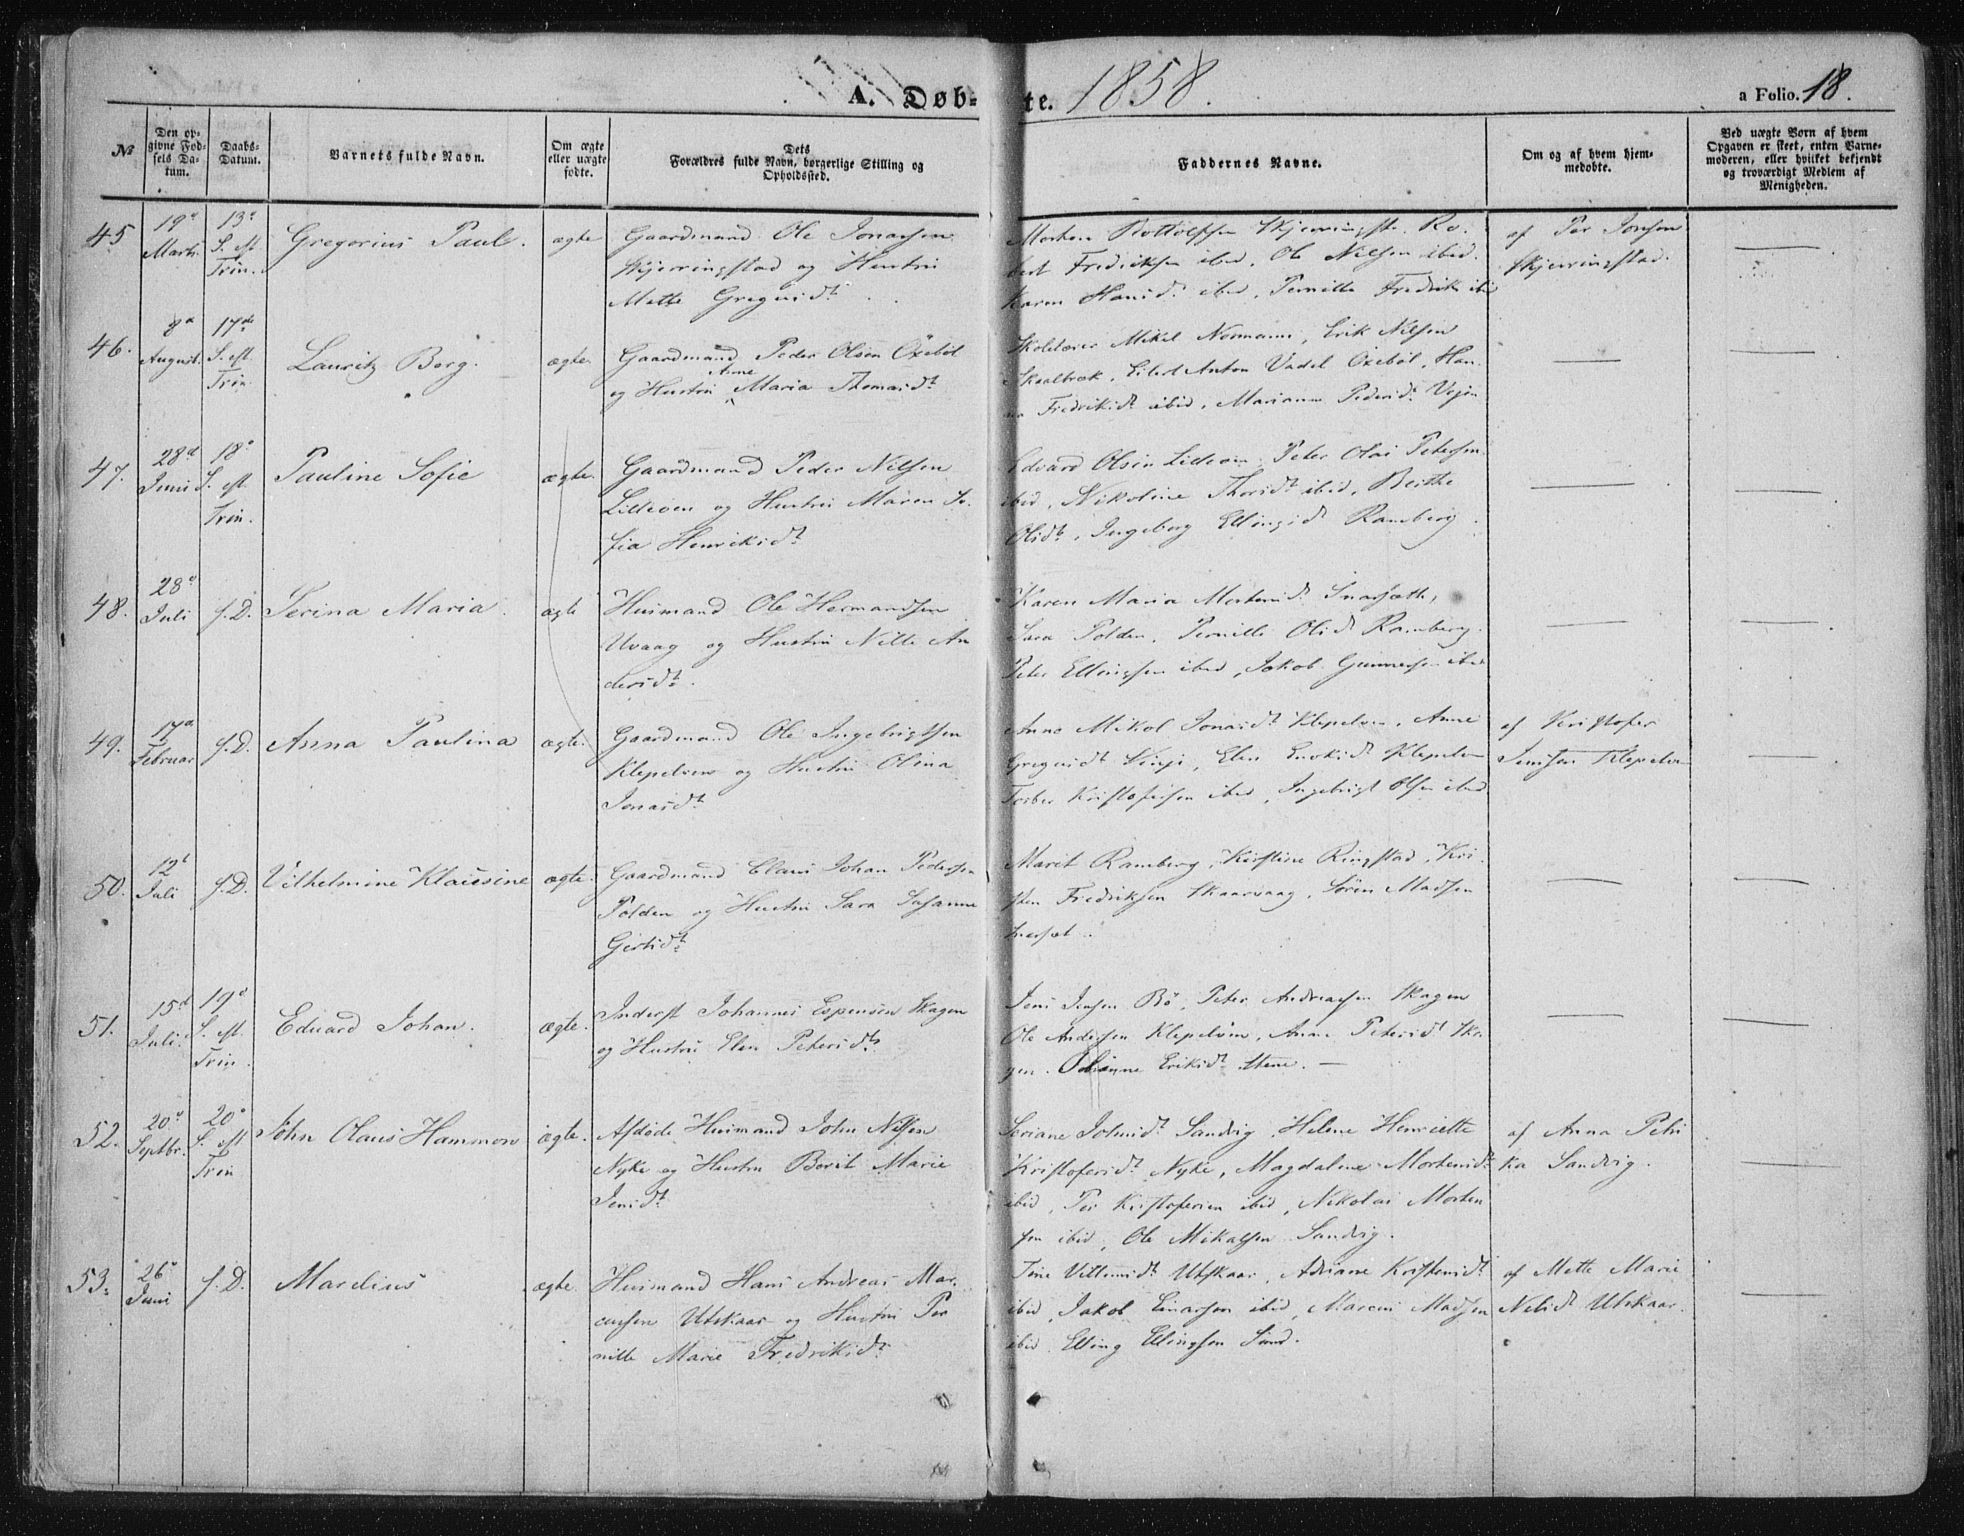 A. Døb-te. 1858.
a Folio. 18.
No
Den opgivne Fødsels Datum.
Daabs-Datum.
Barnets fulde Navn.
Om ægte eller uægte fødte.
Dets Forældres fulde Navn, borgerlige Stilling og Opholdssted.
Faddernes Navne.
Om og af hvem hjemmedøbte.
Ved uægte Børn af hvem Opgaven er skeet, enten Barnemoderen, eller hvilket bekjendt og troværdigt Medlem af Menigheden.
45 19d Marts. 13d S. eft Trin. Gregorius Paul. ægte
Gaardmand Ole Jonassen
Skjerringstad og Hustru
Mette Gregersdt
Morten Rottolfsen Skjerringst. Ro-
bert Fredriksen ibid, Ole Nilsen ibid.
Karen Hansdt ibid, Pernille Fredrik ibid
af Per Jonsen
Skjerringstad.
46. 8d August. 17de S. eft Trin. Lauritz Berg. ægte.
Gaardmand Peder Olsen Oxebøl
og Hustru Anne Maria Thomasdt
Skolelærer Mikel Normann, Erik Nilsen
Skaalbræk, Eilert Anton Vadel Oxebøl, Han-
na Fredrikdt ibid, Marianne Pedersdt
47. 28d Juni 18d S. eft. Trin. Pauline Sofie ægte.
Gaardmand Peder Nilsen
Lilleøen og Hustru Maren So-
fia Henrikdt
Edvard Olsen Lilleøen, Peter Olai Petersen
ibid, Nikoline Thorsdt ibid, Berthe
Olsdt, Ingeborg Ellingsdt Ramberg.
48. 28d Juli f. D. Serina Maria. ægte
Husmand Ole Hermandsen
Uvaag og Hustru Nille An-
dersdt.
Karen Maria Mortensdt Snarsæth,
Sara Polden, Pernille Olsdt Ramberg.
Peter Ellingsen ibid, Jakob Gunnersen ibid
49. 17d Februar f. D. Anna Paulina ægte.
Gaardmand Ole Ingebrigtsen
Klepelven og Hustru Olina
Jonasdt
Anne Mikol Jonasdt Klepelven, Anne
Gregersdt, Elen Klepelven
Torber Kristofersen ibid, Ingebrigt Olsen ibid
af Kristofer
Jensen Klepelven
50. 12d Juli f. D. Vilhelmine Klausine ægte.
Gaardmand Claus Johan Pedersen
Polden og Hustru Sara Susanne
Gjertsdt
Marit Ramberg, Kirstine Ringstad, Kri-
sten Fredriksen Skaarvaag, Sören Madsen
Snarset.
51. 15d Juli. 19d S. eft. Trin. Edvard Johan. ægte.
Inderst Johannes Espensen Skagen
og Hustru Elen Petersdt
Jens Jensen Bö, Peter Andreassen Skagen
Ole Andersen Klepelven, Anne Petersdt Ska-
gen. Johanne Eriksdt Stene. —
52. 20d Septbr. 20d S. eft. Trin John Olaus Hammon ægte.
Afdøde Husmand John Nilsen
Nyke og Hustru Berit Marie
Jensdt
Seriane Johnsdt Sandvig, Helene Henriette
Kristofersdt Nyke, Magdalene Mortensdt
ibid, Per Kristofersen ibid, Nikolai Morten-
sen ibid, Ole Mikalsen Sandvig.
af Anna Petri
ka Sandvig.
53. 26d Juni f. D. Marelius ægte.
Husmand Hans Andreas Mar-
cussen Utskaar og Hustru Per
nille Marie Fredriksdt
Tine Villumsdt Utskaar, Adriane Kristensdt
ibid, Jakob Einarsen ibid, Marcus Madsen
ibid, Elling Ellingsen Sund.
af Mette Marie
Nelsdt Utskaar.